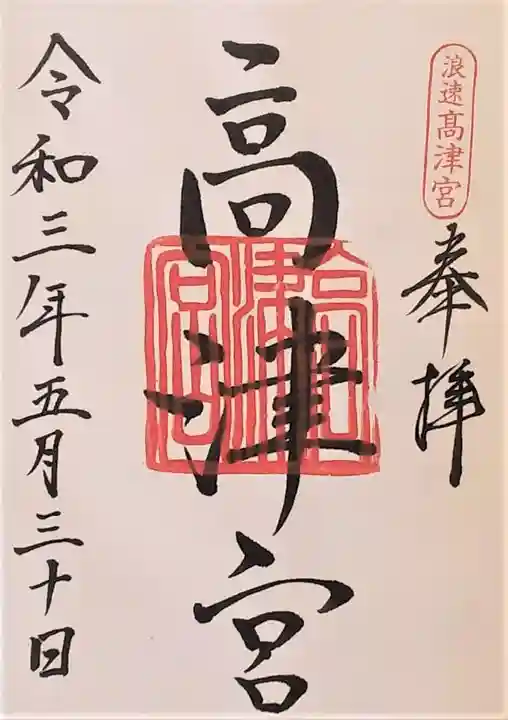 浪速高津宮
奉拝
高津宮
高津宮
令和三年五月三十日